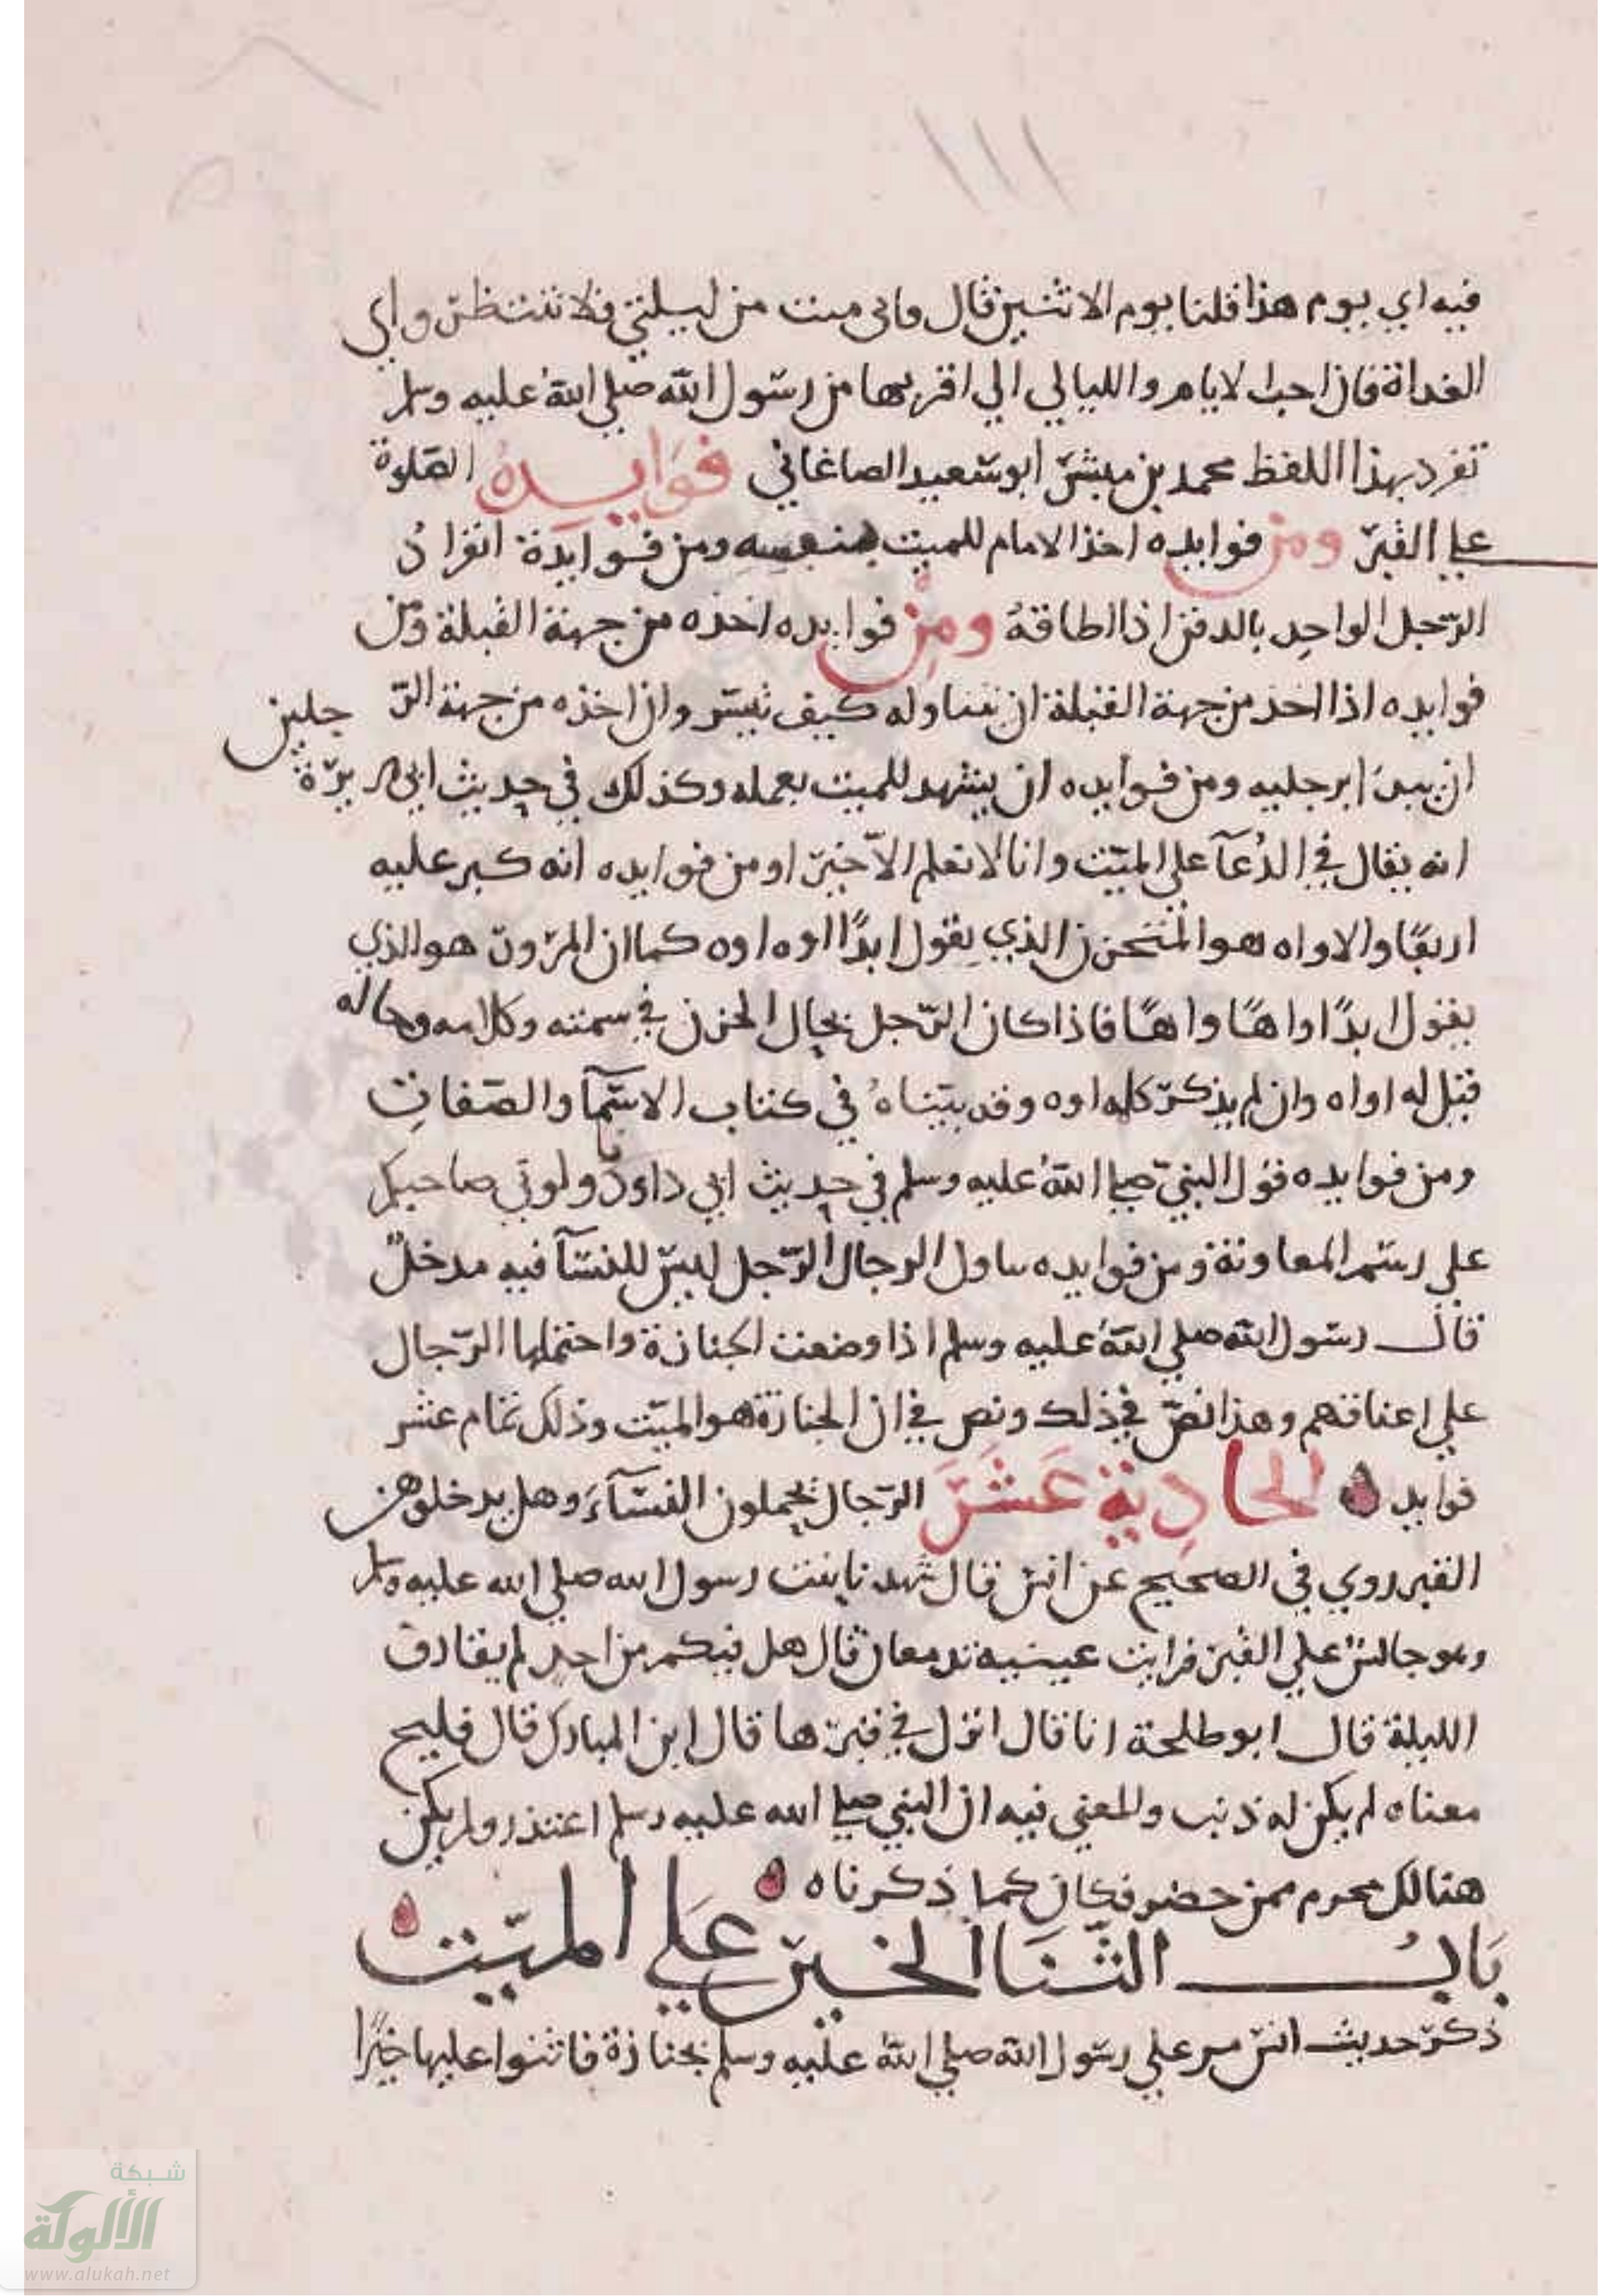 ١١١
فيه اي يوم هذا قلنا يوم الاثنين قال فاني ميت من ليلتي فلا تنتظروا بي
الغداة فان احب الايام والليالي الي اقربها من رسول الله صلي الله عليه وسلم
تفرد بهذا اللفظ محمد بن ميسر ابو سعيد الصاغاني فوايده الصلوة
علي القبر ومن فوايده اخذ الامام للميت بنفسه ومن فوايدة انفراد
الرّجل الواحد بالدفن اذا اطاقه ومن فوايده اخذه من جهة القبلة ومن
فوايده اذا اخذ من جهة القبلة ان يتناوله كيف تيسر وان اخذه من جهة الرّجلين
ان يبدا برجليه ومن فوايده ان يشهد للميت بعمله وكذلك في حديث ابي هريرة
انه يقال في الدُعآ علي الميّت وانا لا نعلم الاّ خيرا ومن فوايده انه كبر عليه
اربعًا والاواه هو المتحزن الذي يقول ابدًا اوه اوه كما ان هو الذي
يقول ابدًا واهًا واهًا فاذا كان الرّجل بحال الحزن في سمته وكلامه وحاله
قيل له اواه وان لم يذكر كلمه اوه وقد بيّناهُ في كتاب الاسمآ والصّفات
ومن فوايده قول النبي صلي الله عليه وسلم في حديث ابي داود ناولوني صاحبكم
علي رسم المعاونة ومن فوايده تناول الرجال الرّجل ليس للنسآ فيه مدخل
قال رسول الله صلي الله عليه وسلم اذا وضعت الجنازة واحتملها الرّجال
علي اعناقهم وهذا نصّ في ذلك ونص في ان الجنازة هو الميّت وذلك تمام عشر
فوايد الحادية عشر الرّجال يحملون النسآء وهل يدخلوهن
القبر روي في الصحيح عن انس قال شهدنا بنت رسول الله صلي الله عليه وسلم
وهو جالس علي القبر فرايت عينيه تدمعان قال هل فيكم من احد لم يقارف
الليلة قال ابو طلحة انا قال انزل في قبرها قال ابن المبارك قال فليح
معناه لم يكن له ذنب والمعني فيه ان النبي صلي الله عليه وسلم اعتذر ولم يكن
هنالك محرم ممن حضر فكان كما ذكرناه
بَابُ الثّنَا الخير عَلي الميّت
ذكر حديث انس مر علي رسول الله صلي الله عليه وسلم بجنازة فاثنوا عليها خيرًا
شبكة
الألوكة
www.alukah.net